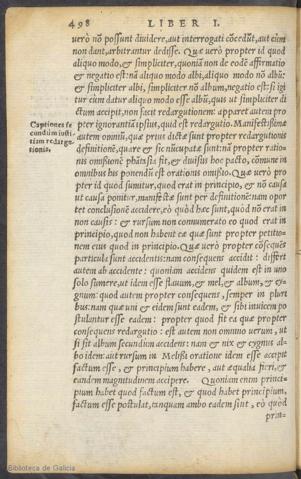 498 LIBER I.
uerò nõ possunt diuidere, aut interrogati cõcedũt, aut cùm
non dant, arbitrantur dedisse. Quæ uerò propter id quod
aliquo modo, & simpliciter, quoniã non de eodẽ affirmatio
& negatio est: nã aliquo modo albi, aliquo modo nõ albũ:
& simpliciter albi, simpliciter nõ album, negatio est: si igi
tur cùm datur aliquo modo esse albũ, quis ut simpliciter di
ctum accipit, non facit redargutionem: apparet autem pro
Captiones se
cundum iusti-
tiam redarg-
tionis.
pter ignorantiã ipsius, quid est redargutio. Manifestissimæ
autem omniũ, quæ prius dictæ sunt propter redargutionis
definitionẽ, quare & sic nũcupatæ sunt: nã propter ratio-
nis omissionẽ phãtasia fit, & diuisis hoc pacto, cõmune in
omnibus his ponendũ est orationis omissio. Quæ uerò pro
pter id quod sumitur, quod erat in principio, & nõ causa
ut causa ponitur, manifestæ sunt per definitionẽ: nam opor
tet conclusionẽ accidere, eò quòd hæc sunt, quòd nõ erat in
non causis: & rursum non connumerato eo quod erat in
principio, quod non habent eæ quæ sunt propter petitio-
nem eius quod in principio. Quæ uerò propter cõsequẽs
particula sunt accidentis: nam consequens accidit: differt
autem ab accidente: quoniam accidens quidem est in uno
solo sumere, ut idem esse flauum, & mel, & album, & cy-
gnum: quod autem propter consequens, semper in pluri
bus: nam quæ uni & eidem sunt eadem, & sibi inuicem po
stulantur esse eadem: propter quod fit ea quæ propter
consequens redargutio: est autem non omnino uerum, ut
si sit album secundùm accidens: nam & nix & cygnus al-
bo idem: aut rursum in Melissi oratione idem esse accipit
factum esse, & principium habere, aut æqualia fieri, &
eandem magnitudinem accipere. Quoniam enim princi-
pium habet quod factum est, & quod habet principium,
factum esse postulat, tanquam ambo eadem sint, eò quòd
prin-
Biblioteca de Galicia